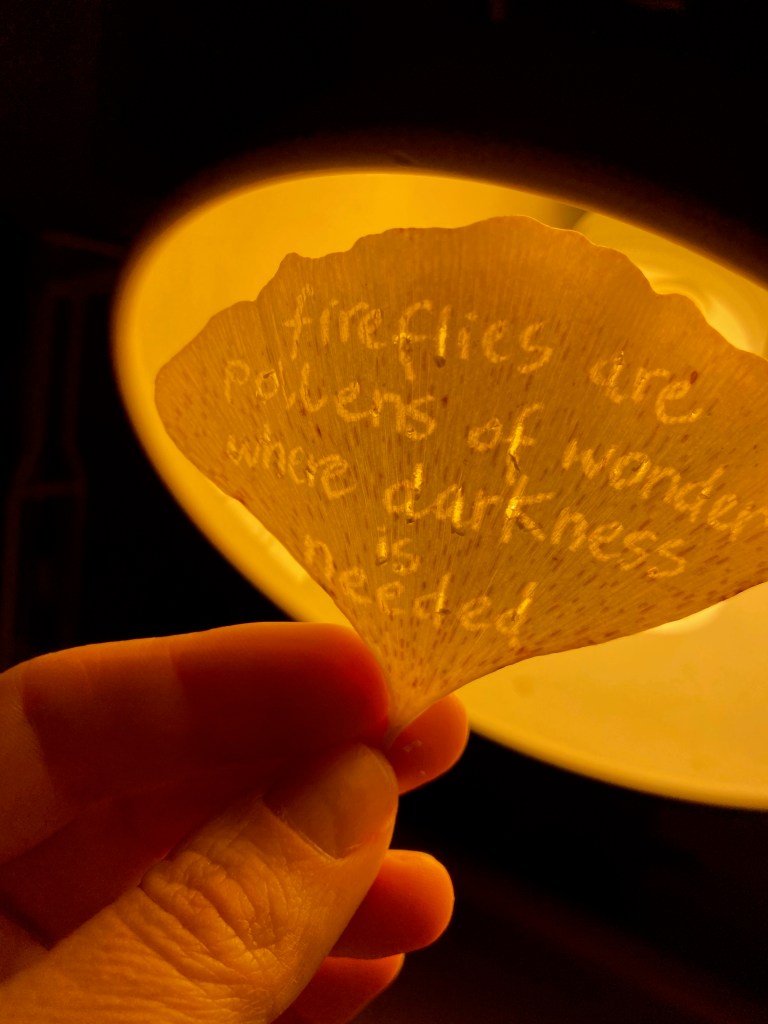 fireflies are
pollens of wonder
where darkness
is
needed